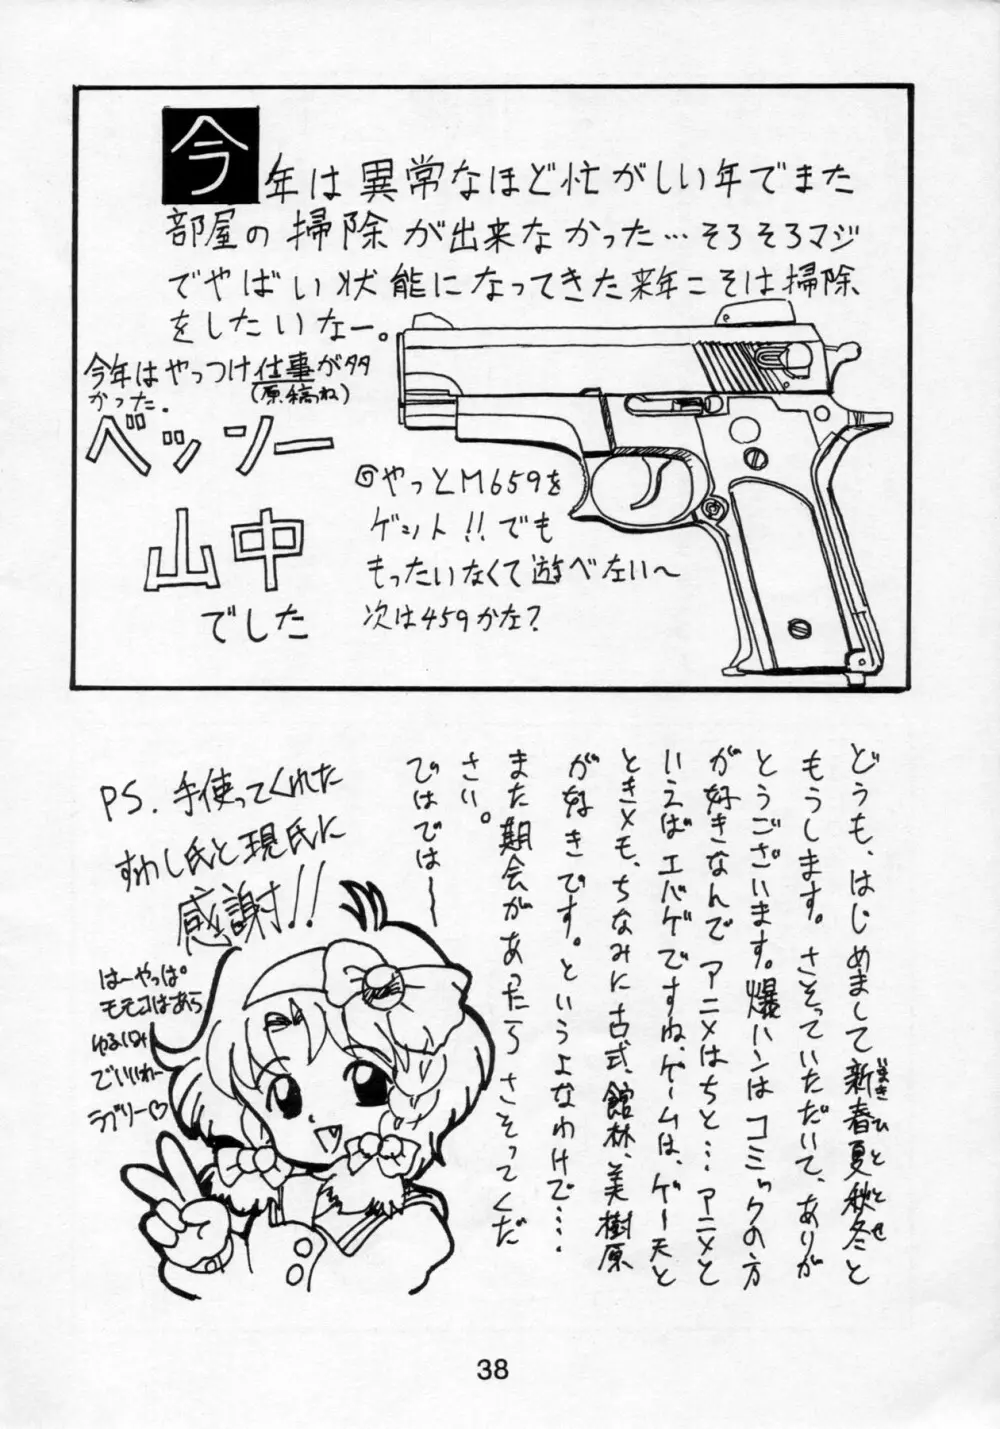 今年は異常なほど忙がしい年でまた
部屋の掃除が出来なかった…そろそろマジ
でやばい状態になってきた来年こそは掃除
をしたいなー。
今年はやっつけ仕事が多
(原稿ね)
かった。
ベッソー
山中
でした
◎やっとM659を
ゲット!!でも
もったいなくて遊べない〜
次は459かな?
どうも、はじめまして新春夏秋冬と
いまきひとせ
もうします。さそっていただいて、ありが
とうございます。爆ハンはコミックの方
が好きなんでアニメはちと…アニメと
いえばエバゲですね、ゲームは、ゲー天と
ときメモ、ちなみに古式、館林、美樹原
が好きです。というよなわけで……
また期会があったらさそってくだ
さい。
ではでは〜
PS. 手使ってくれた
すわし氏と現氏に
感謝!!
はーやっぱ。
モモコはあら
ゆるいみ
でいいわー
ラブリー♡
38